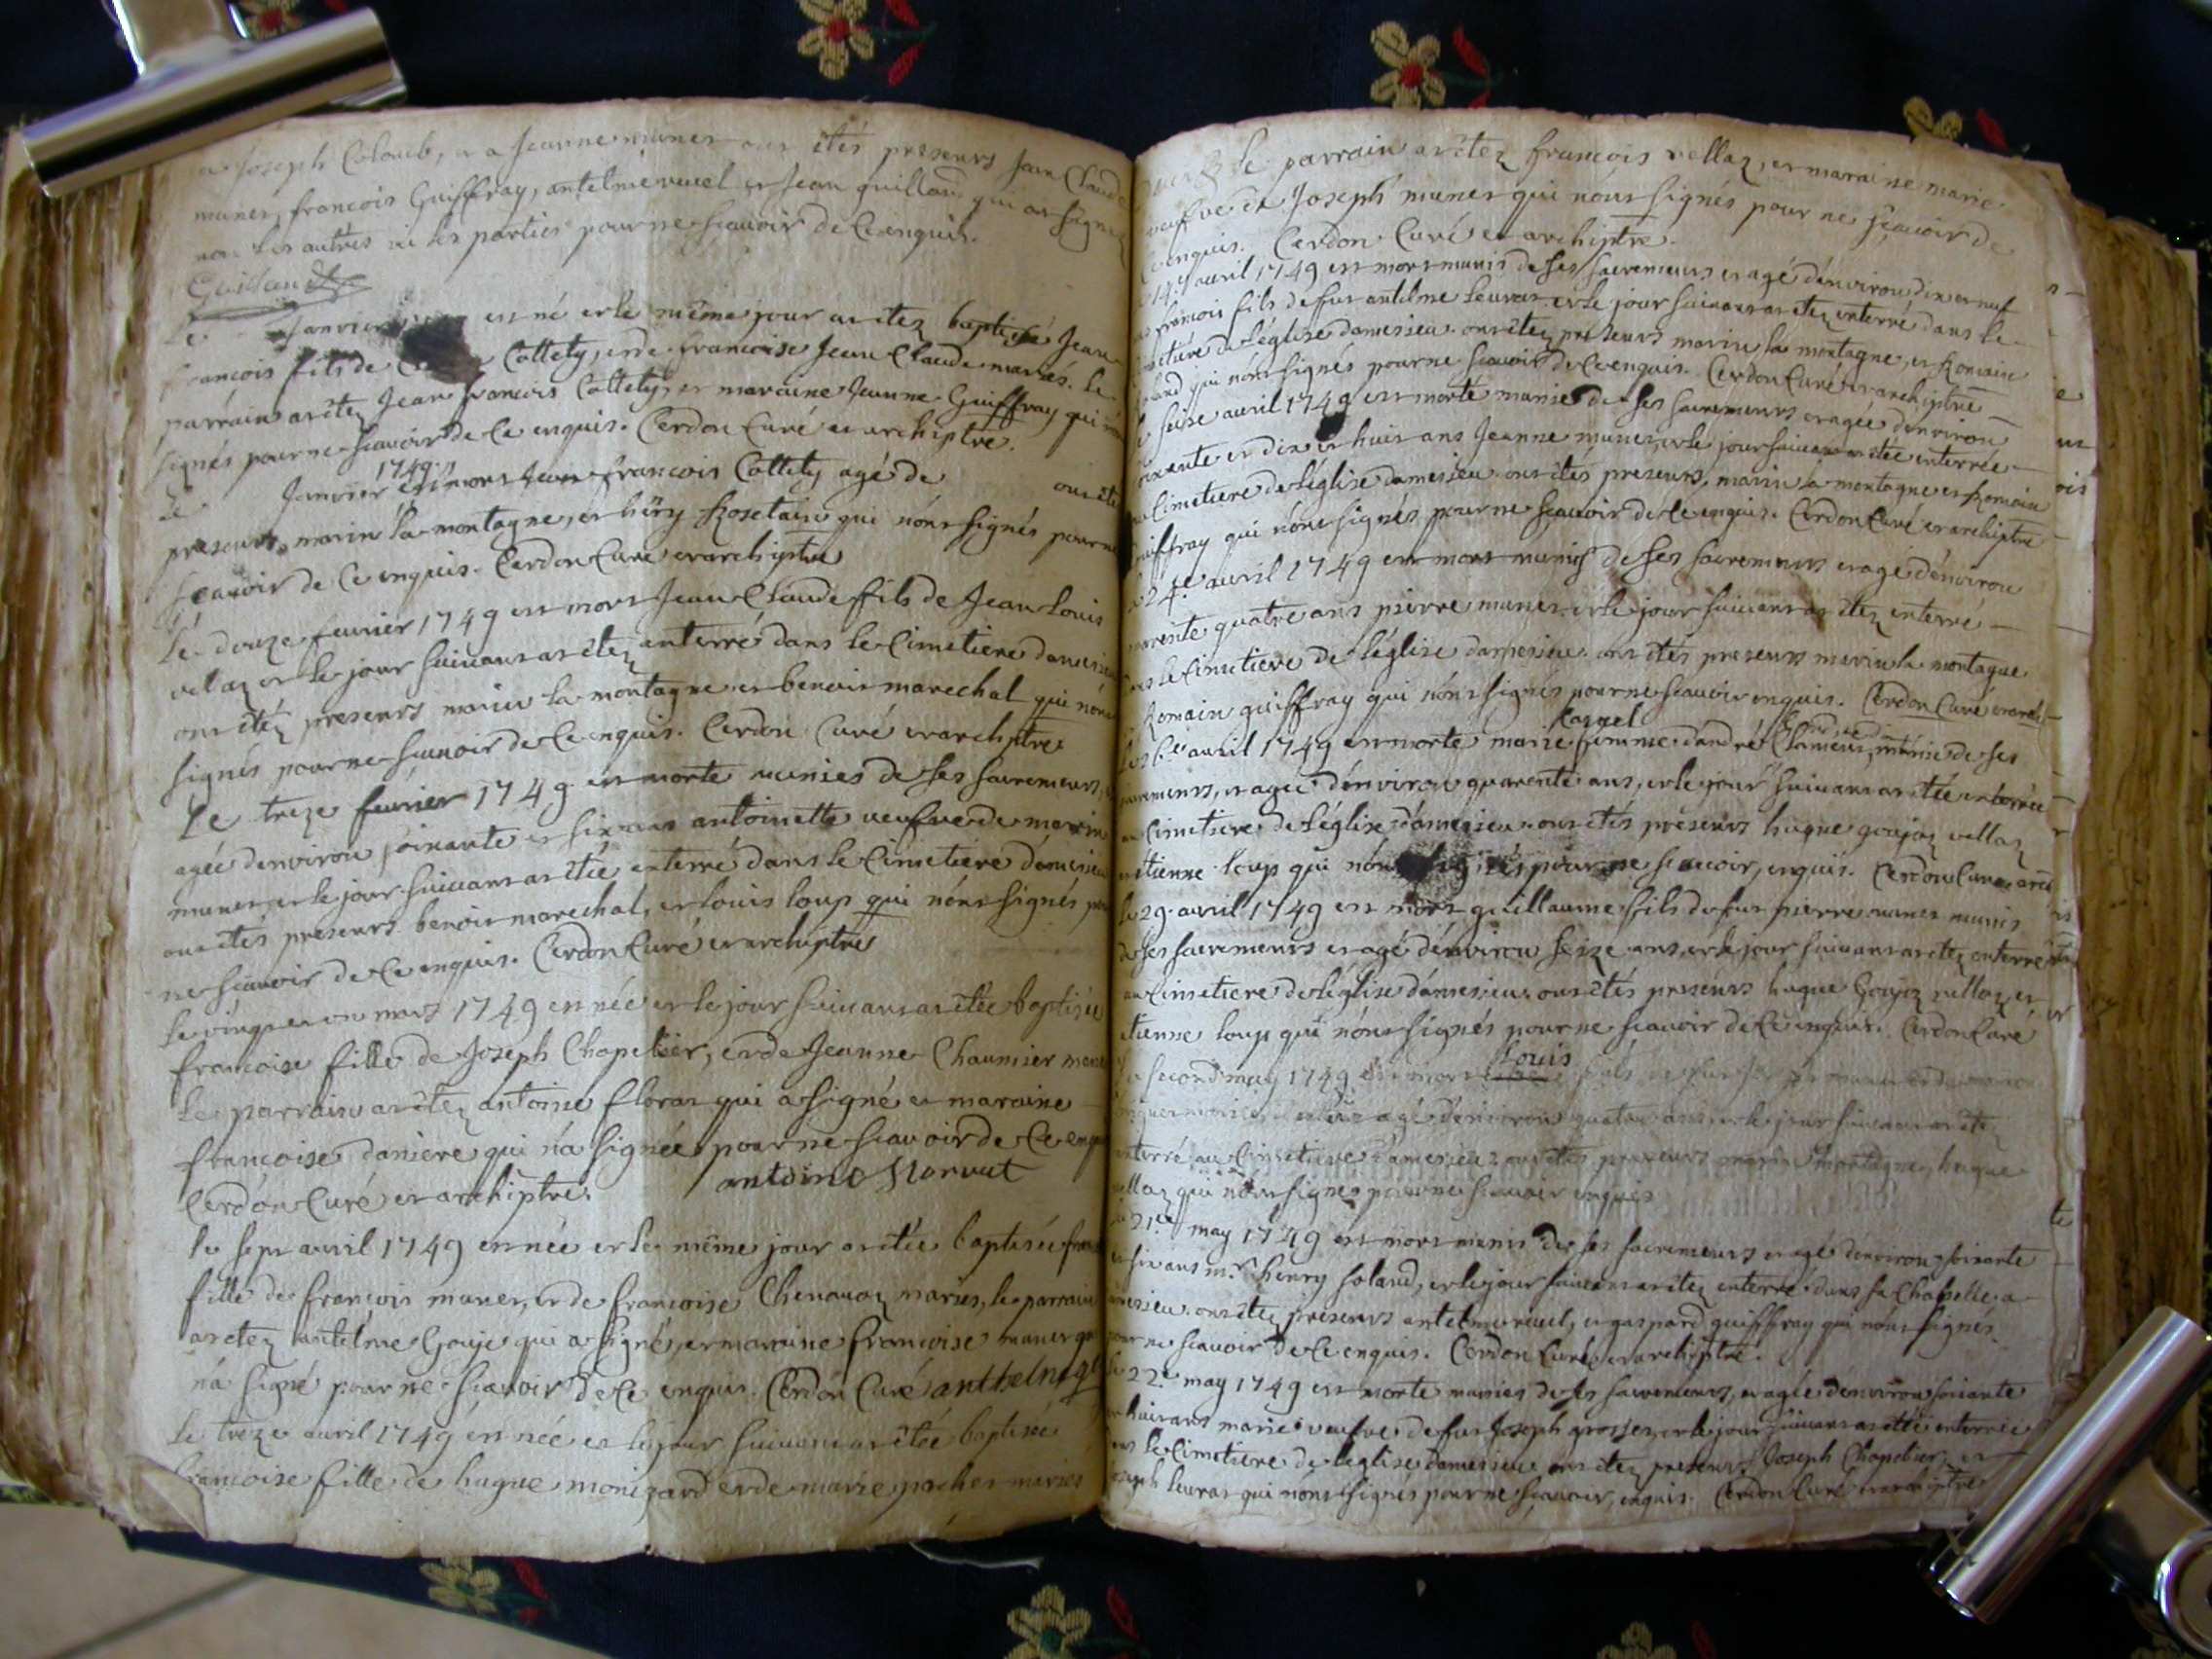 a Joseph Colomb, et a Jeanne munet ont étés presents Jean Claude
munet, francois Guiffray, antelme reuel et Jean guilland qui ont signé
non les autres ni les parties pour ne scauoir de Ce enquis.
Guilland
Le Janvier est né et le même jour a etez baptisé Jean
francois fils de Collety, et de francoise Jean Claude mariés. le
parrain a etez Jean francois Collety, et maraine Jeanne Guiffray qui n'ont
signés pour ne scauoir de Ce enquis. Cerdon Curé et archiptre.
1749
Le Janvier est mort Jean francois Collety agé de ont étés
presents marin la montagne, et héry Rosetain qui n'ont signés pour ne
scauoir de Ce enquis. Cerdon Curé et archiptre
Le douze feurier 1749 est mort Jean Claude fils de Jean Louis
velaz et le jour suiuant a etez enterré dans le Cimetiere damesieu
ont étéz presents marin la montagne et benoit marechal qui n'ont
signés pour ne scauoir de Ce enquis. Cerdon Curé et archiptre
Le treze feurier 1749 est morte munies de ses sacrements,
agée denviron soixante et six ans antoinette veufve de marin
munet, et le jour suiuant a étée enterré dans le Cimetiere damesieu
ont étés presents benoit marechal, et louis loup qui n'ont signés pour
ne scauoir de Ce enquis. Cerdon Curé et archiptre
le vingt et un mars 1749 est née et le jour suiuant a étée baptisée
francoise fille de Joseph Chapelier, et de Jeanne Chaumier mariés
le parrain a étez antoine floras qui a signé et maraine
francoise daniere qui n'a signée pour ne scauoir de Ce enquis
Cerdon Curé et archiptre. antoine
le sept auril 1749 est née et le même jour a étée baptisée
fille de francois munet, et de francoise Chenauaz mariés, le parrain
a etez antelme Gouje qui a signé, et maraine francoise munet qui
n'a signé pour ne scauoir de Ce enquis. Cerdon Curé
le treze auril 1749 est née et le jour suiuant a étée baptisée
francoise fille de hugue monizard et de marie pochet mariés
le parrain a étez francois vellaz, et maraine marie
veufve de Joseph munet qui n'ont signés pour ne scauoir de
Ce enquis. Cerdon Curé et archiptre.
14 auril 1749 est mort munis de ses sacrements et agé denviron dix et neuf
francois fils de fut antelme leurat et le jour suiuant a étez enterré dans le
de l'église damesieu. ont étez presents marin la montagne, et Romain
qui n'ont signés pour ne scauoir de Ce enquis. Cerdon Curé et archiptre
seize auril 1749 est morte munie de ses sacrements et agée denviron
soixante et dix et huit ans Jeanne munet, et le jour suiuant a étée enterrée
Cimetiere de l'église damesieu ont étés presents, marin la montagne et Romain
guiffray qui n'ont signés pour ne scauoir de Ce enquis. Cerdon Curé et archiptre
24e auril 1749 est mort munis de ses sacrements et agé denviron
quatre ans pierre munet. et le jour suiuant a étez enterré
le Cimetiere de l'église damesieu. ont étés presents marin la montagne
Romain guiffray qui n'ont signés pour ne scauoir enquis. Cerdon Curé
auril 1749 est morte marie femme d'andré munie de ses
sacrements, et agée denviron quarente ans, et le jour suiuant a étée enterrée
Cimetiere de l'église damesieu. ont étés presents hugue goujoz vellaz
etienne loup qui n'ont signés pour ne scauoir, enquis. Cerdon Curé
29. auril 1749 est mort guillaume fils de fut pierre munet munis
de ses sacrements et agé denviron seize ans, et le jour suiuant a étez enterré
au Cimetiere de l'église damesieu. ont étés presents hugue Goujoz vellaz, et
etienne loup qui n'ont signés pour ne scauoir de Ce enquis. Cerdon Curé
Louis
second may 1749 est mort fils
agé denviron quatre ans et le jour suiuant a étez
enterré au Cimetiere damesieu ont étés presents marin montagne, hugue
vellaz qui n'ont signés pour ne scauoir enquis
21e may 1749 est mort munis de ses sacrements et agé denviron soixante
et six ans mr. henry soland, et le jour suiuant a étez enterré dans sa Chapelle a
damesieu. ont étez presents antelme reuel, et gaspard guiffray qui n'ont signés
pour ne scauoir de Ce enquis. Cerdon Curé et archiptre.
22e may 1749 est morte munies de ses sacrements, et agée denviron soixante
huit ans marie veufve de fut Joseph grosset, et le jour suiuant a étée enterrée
le Cimetiere de l'église damesieu ont étez presents Joseph Chapelier, et
Joseph leurat qui n'ont signés pour ne scauoir, enquis. Cerdon Curé et archiptre